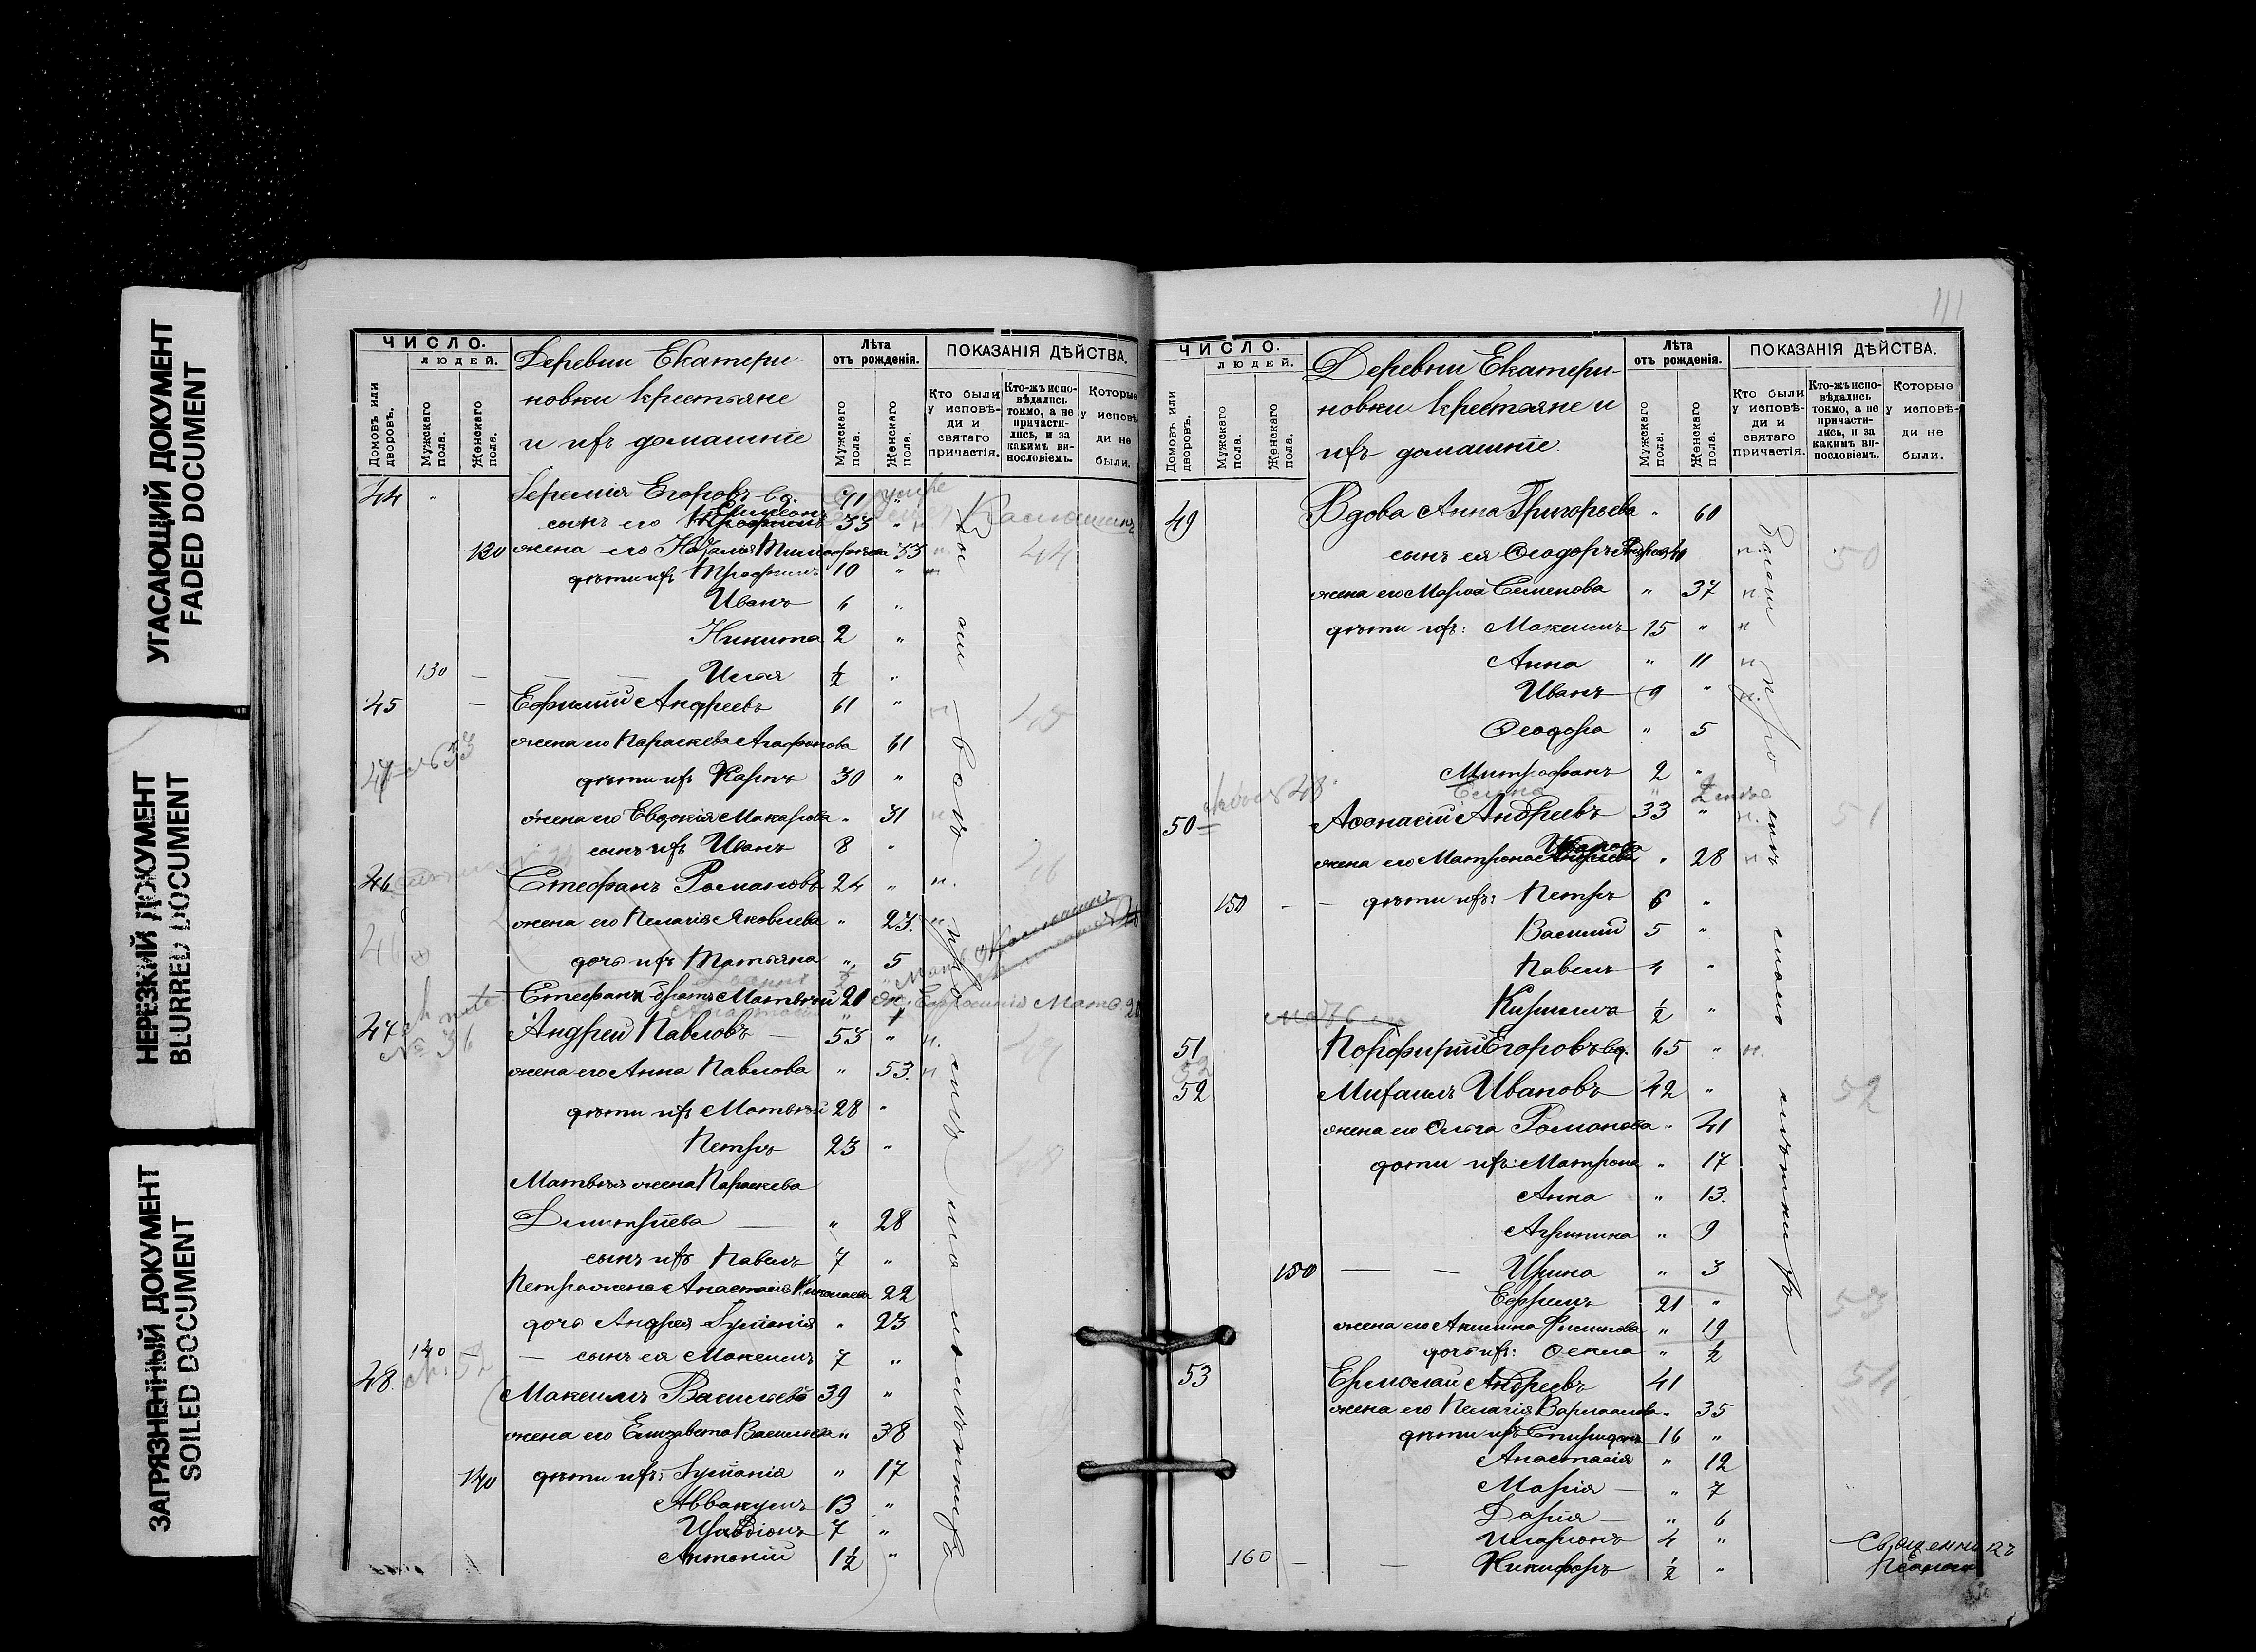 УГАСАЮЩИЙ ДОКУМЕНТ
FADED DOCUMENT
НЕРЕЗКИЙ ДОКУМЕНТ
BLURRED DOCUMENT
ЗАГРЯЗНЕННЫЙ ДОКУМЕНТ
SOILED DOCUMENT
ЧИСЛО.
ЛЮДЕЙ.
Домовъ или дворовъ.
Мужскаго пола.
Женскаго пола.
Деревни Екатери-
новки крестьяне
и ихъ домашніе
Лѣта отъ рожденія.
Мужскаго пола.
Женскаго пола.
ПОКАЗАНІЯ ДѢЙСТВА.
Кто были у исповѣ-ди и святаго причастія.
Кто-жъ испо-вѣдались токмо, а не причасти-лись, и за какимъ ви-нословіемъ.
Которые у исповѣ-ди не были.
44 " Іеремія Егоровъ вд. 71 "
сынъ его Симеонъ 33 "
130 жена его Наталія Тимофѣева 33
дѣти ихъ Трофимъ 10 "
Иванъ 6 "
Никита 2 "
130 — Илья ½ "
44
45 — Ефимій Андреевъ 61 " 45
жена его Параскева Агафонова 61
дѣти ихъ Карпъ 30 "
жена его Евдокія Макарова " 31
сынъ ихъ Иванъ 8 "
46 Стефанъ Романовъ 24 " н. 46
жена его Пелагія Яковлева " 23.
дочь ихъ Татьяна " 5
Стефана братъ Матвѣй 20
47 Андрей Павловъ — 53 " н.
№ 36
жена его Анна Павлова " 53. н
дѣти ихъ Матвѣй 28 "
Петръ 23 "
48
Матвѣя жена Параскева
Димитріева — " 28
сынъ ихъ Павелъ 7 "
Петра жена Анастасія Николаева 22
дочь Андрея Іуліанія " 23
140 — сынъ ея Максимъ 7 "
48. Максимъ Васильевъ 39 "
жена его Елизавета Васильева " 38
140 дѣти ихъ: Іуліанія " 17
Аввакумъ 13 "
Иродіонъ 7 "
Антоній 1½ "
111
ЧИСЛО.
ЛЮДЕЙ.
Домовъ или дворовъ.
Мужскаго пола.
Женскаго пола.
Деревни Екатери-
новки крестьяне и
ихъ домашніе.
Лѣта отъ рожденія.
Мужскаго пола.
Женскаго пола.
ПОКАЗАНІЯ ДѢЙСТВА.
Кто были у исповѣ-ди и святаго причастія.
Кто-жъ испо-вѣдались токмо, а не причасти-лись, и за какимъ ви-нословіемъ.
Которые у исповѣ-ди не были.
49 Вдова Анна Григорьева " 60
сынъ ея Ѳеодоръ Андреевъ 40 н. 50
жена его Марѳа Семенова " 37 н
дѣти ихъ: Максимъ 15 " н
Анна " 11 н
Иванъ 9 " н.
Ѳеодора " 5
Митрофанъ 2 "
50 Аѳонасій Андреевъ 33 " н. 51
жена его Матрона Иванова " 28 н
150 — — дѣти ихъ: Петръ 6 "
Василій 5 "
Павелъ 4 "
Кирилла ½ "
51 Порфирій Егоровъ вд. 65 " н.
52
52 Михаилъ Ивановъ 42 " 52
жена его Ольга Романова " 41
дѣти ихъ: Матрона " 17
Анна " 13.
Агрипина " 9
150 — — Ирина " 3
Ефремъ 21 " 53
жена его Акилина Филипова " 19
дочь ихъ: Ѳекла " ½
53 Ермолай Андреевъ 41 54
жена его Пелагія Варлаамова " 35
дѣти ихъ Спиридонъ 16 "
Анастасія " 12
Марія — " 7
Дарія — " 6
Иларіонъ 4 "
160 — — Никифоръ ½ "
Священникъ